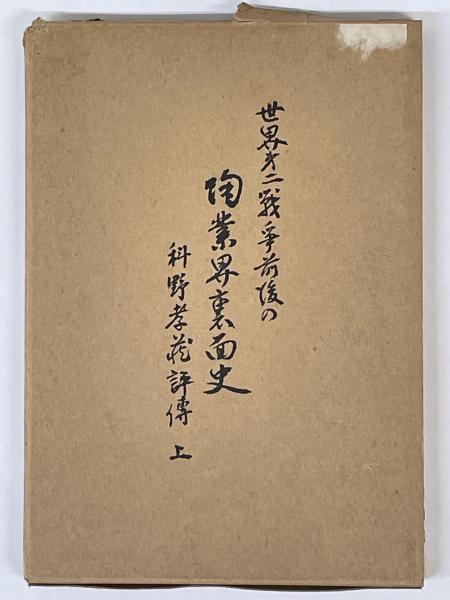 世界第二戰爭前後の
陶業界裏面史
科野孝蔵評傳 上